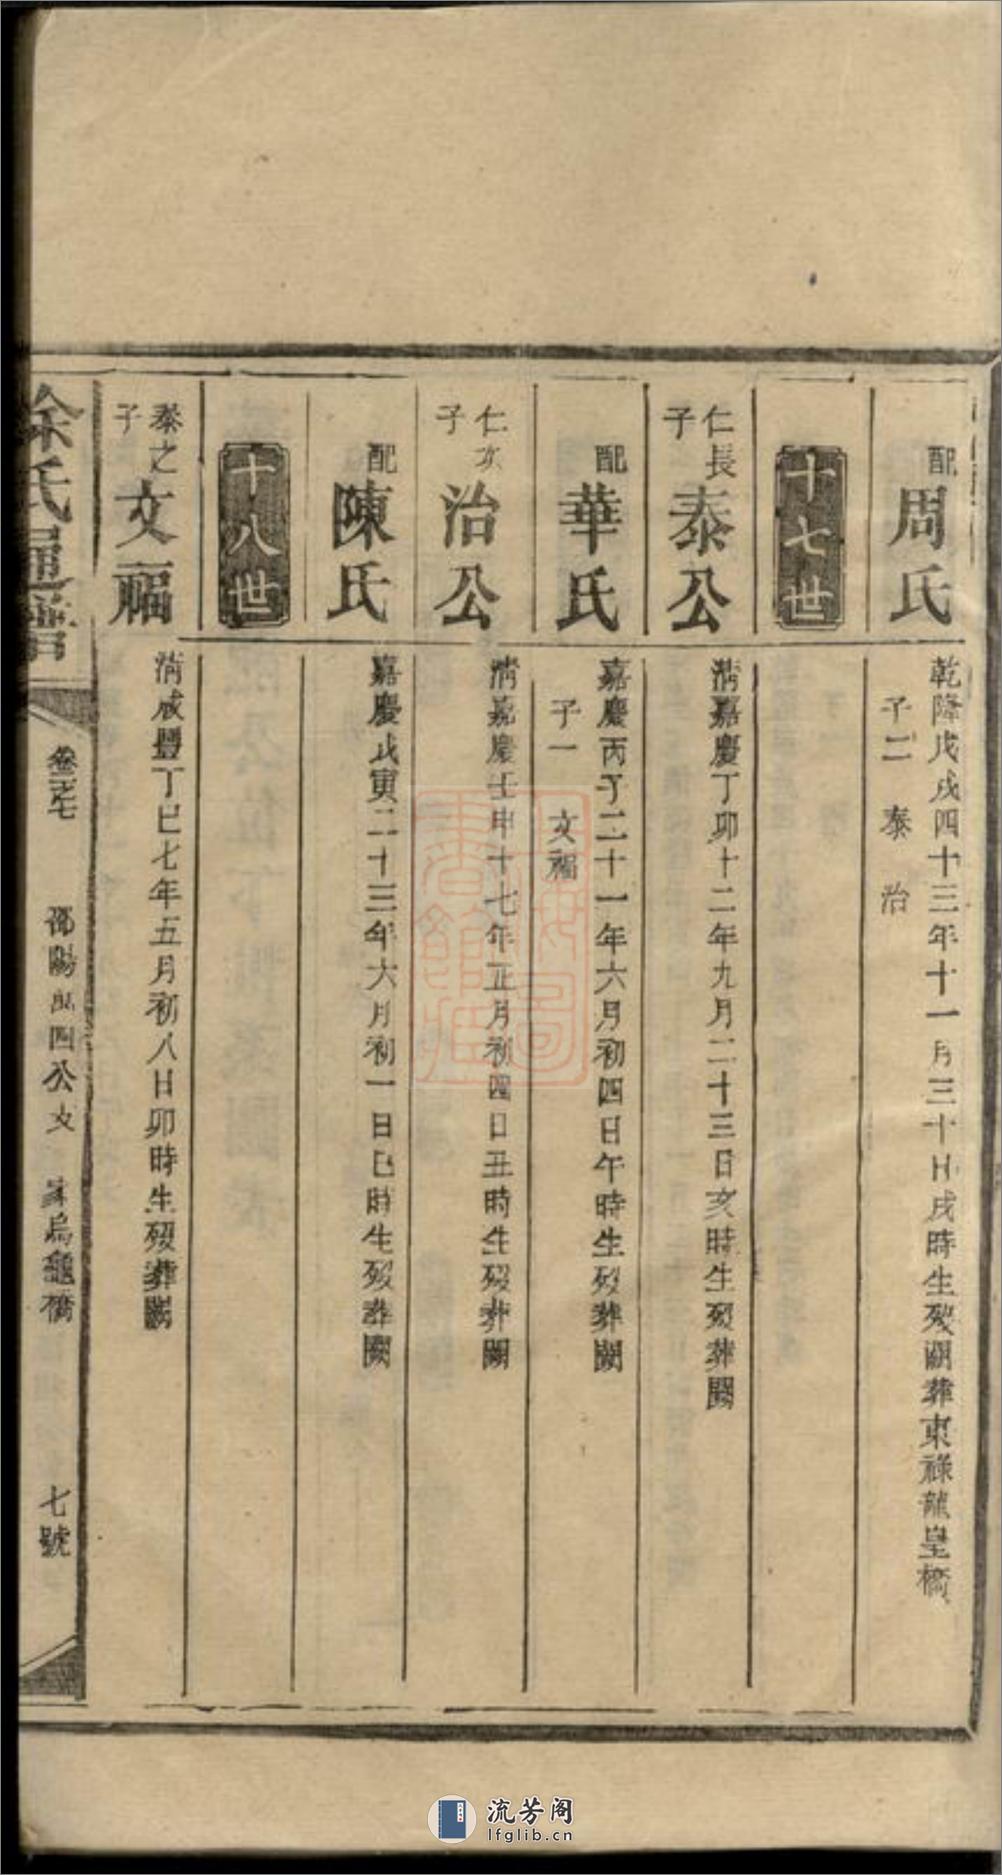 配周氏
乾隆戊戌四十三年十一月三十日戌時生歿闕葬東祿龍皇橋
子二 泰 治
十七世
仁長子泰公
清嘉慶丁卯十二年九月二十三日亥時生歿葬闕
配華氏
嘉慶丙子二十一年六月初四日午時生歿葬闕
子一 文福
仁次子治公
清嘉慶壬申十七年正月初四日丑時生歿葬闕
配陳氏
嘉慶戊寅二十三年六月初一日巳時生歿葬闕
十八世
泰之子文福
清咸豐丁巳七年五月初八日卯時生歿葬闕
徐氏通譜
卷之七
邵陽 四公支
烏龜橋
七號
流芳阁
lfglib.cn